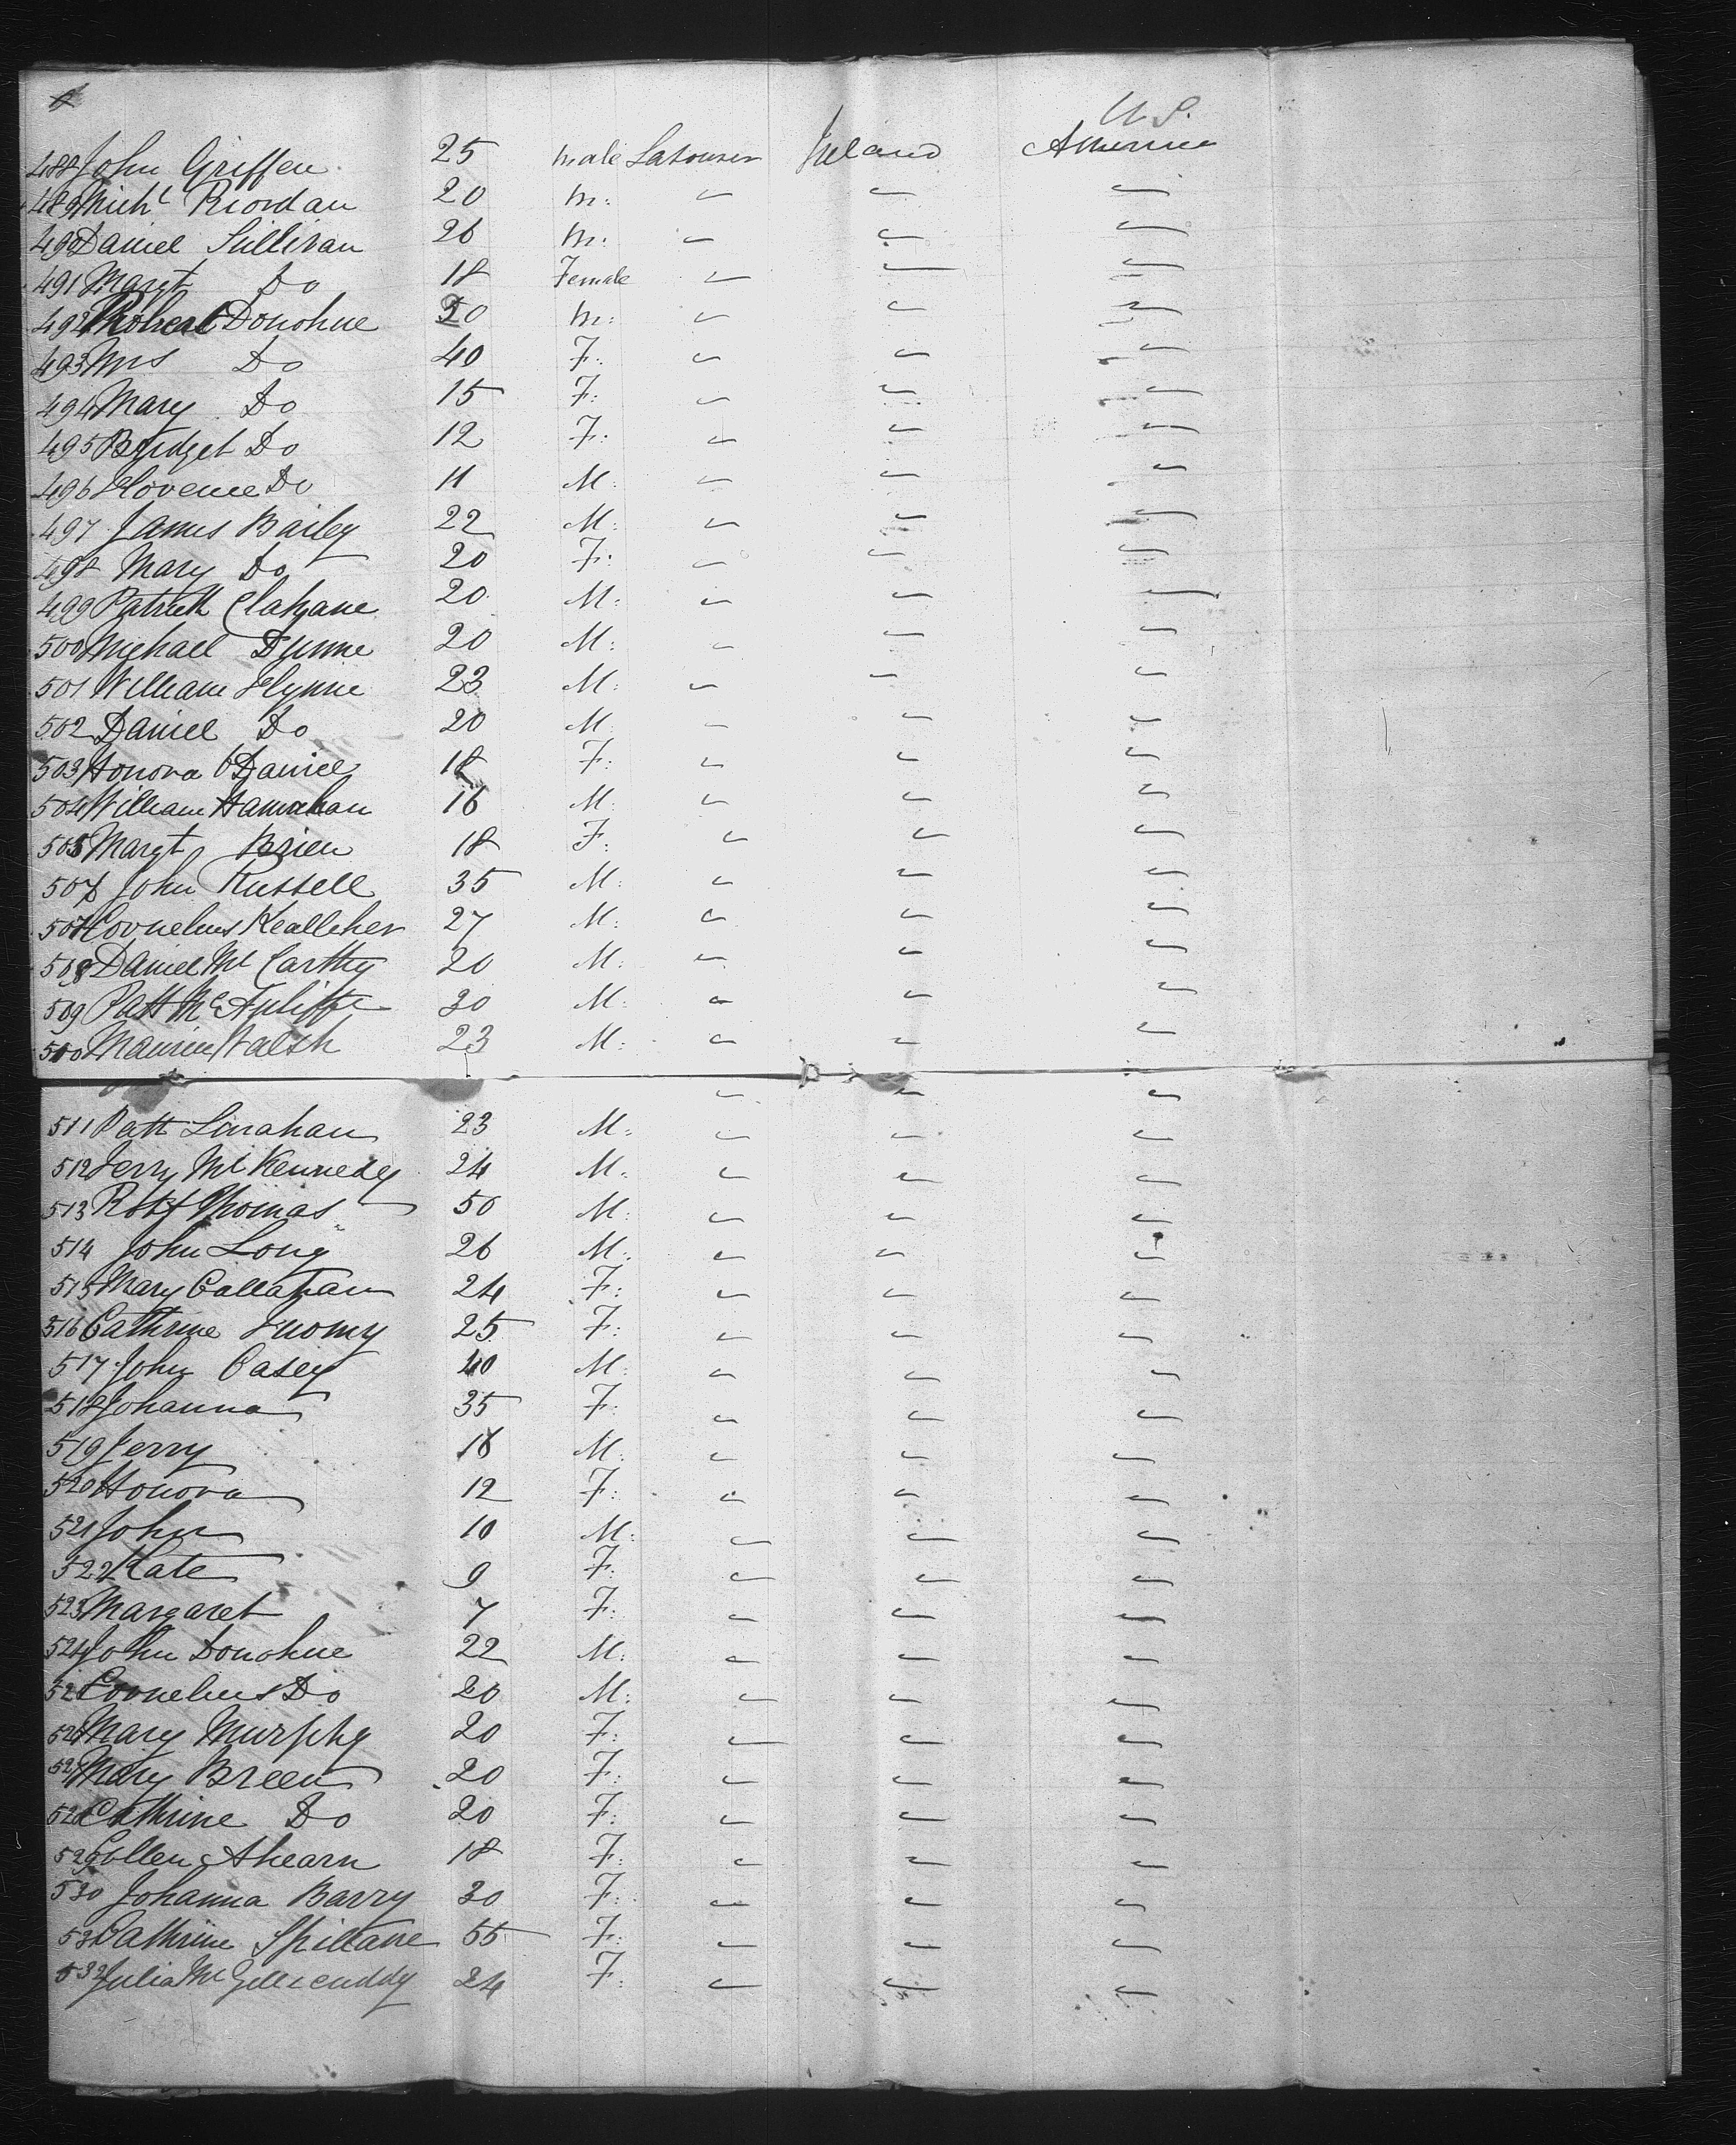 U.S.
488 John Griffen 25 male Labourer Ireland America
489 Michl Riordan 20 M: " " "
490 Daniel Sullivan 26 M: " " "
491 Margt Do 18 Female " " "
492 Robert Donohue 50 M: " " "
493 Mrs Do 40 F: " " "
494 Mary Do 15 F: " " "
495 Bridget Do 12 F: " " "
496 Florence Do 11 M: " " "
497 James Bailey 22 M: " " "
498 Mary Do 20 F: " " "
499 Patrick Clahane 20 M: " " "
500 Michael Dunne 20 M: " " "
501 William Flynne 23 M: " " "
502 Daniel Do 20 M " " "
503 Honora O'Daniel 18 F: " " "
504 William Hanrahan 16 M: " " "
505 Margt Brien 18 F: " " "
506 John Russell 35 M: " " "
507 Cornelius Kealleher 27 M: " " "
508 Daniel Mc Carthy 20 M: " " "
509 Patt Mc Auliffe 30 M: " " "
510 Maurice Walsh 23 M: " " "
" " "
511 Patt Linahan 23 M: " " "
512 Jerry Mc Kennedy 24 M: " " "
513 Robt Thomas 50 M: " " "
514 John Long 26 M: " " "
515 Mary Callahan 24 F: " " "
516 Cathrine Twomy 25 F: " " "
517 John Casey 40 M: " " "
518 Johanna 35 F: " " "
519 Jerry 16 M: " " "
520 Honora 12 F: " " "
521 John 10 M: " " "
522 Kate 9 F: " " "
523 Margaret 7 F: " " "
524 John Donohue 22 M: " " "
525 Cornelius Do 20 M: " " "
526 Mary Murphy 20 F: " " "
527 Mary Breen 20 F: " " "
528 Cathrine Do 20 F: " " "
529 Ellen Ahearn 18 F: " " "
530 Johanna Barry 30 F: " " "
531 Cathrine Spillane 55 F: " " "
532 Julia Mc Gillicuddy 24 F: " " "